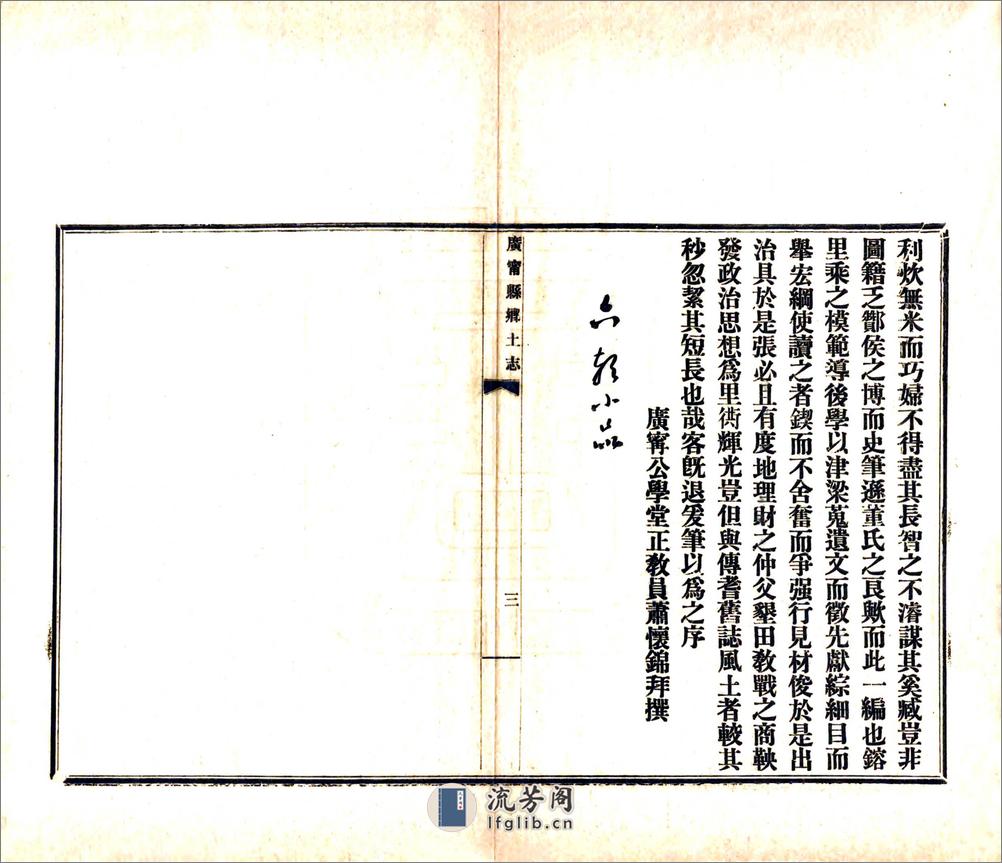 利炊無米而巧婦不得盡其長智之不濬謀其奚臧豈非
圖籍乏酇侯之博而史筆遜董氏之良歟而此一編也鎔
里乘之模範導後學以津梁蒐遺文而徵先獻綜細目而
舉宏綱使讀之者鍥而不舍奮而爭强行見材俊於是出
治具於是張必且有度地理財之仲父墾田敎戰之商鞅
發政治思想爲里衖輝光豈但與傳耆舊誌風土者較其
秒忽絜其短長也哉客旣退爰筆以爲之序
廣甯公學堂正敎員蕭懷錦拜撰
小品
廣甯縣鄉土志
三
流芳阁
lfglib.cn